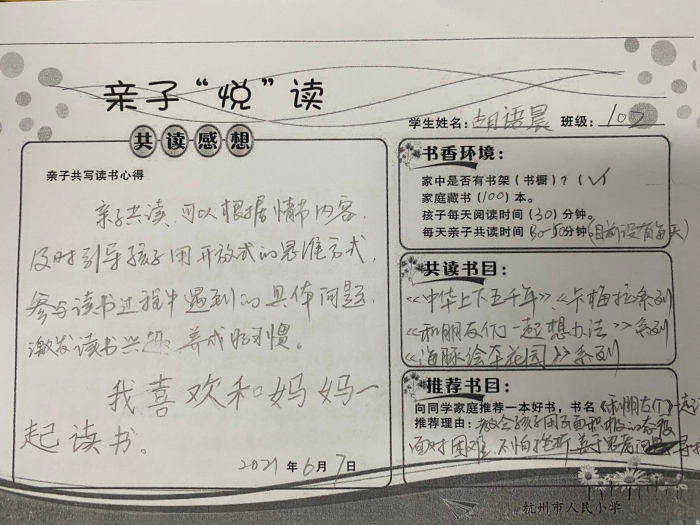 亲子“悦”读
学生姓名：胡语晨 班级：102
共读感想
亲子共写读书心得
亲子共读，可以根据情节内容，
及时引导孩子用开放式的思维方式，
参与读书过程中遇到的具体问题，
激发读书兴趣 养成好习惯。
我喜欢和妈妈一
起读书。
2021年6月7日
书香环境：
家中是否有书架（书橱）？（√
家庭藏书（100）本。
孩子每天阅读时间（30）分钟。
每天亲子共读时间 30-50分钟（目前没有每天）
共读书目：
《中华上下五千年》、卡梅拉系列
《和朋友们一起想办法》系列
《海豚绘本花园》系列
推荐书目：
向同学家庭推荐一本好书，书名《和朋友们一起
推荐理由：教会孩子用正面积极的态度
面对困难 不怕挫折 善于思考
杭州市人民小学